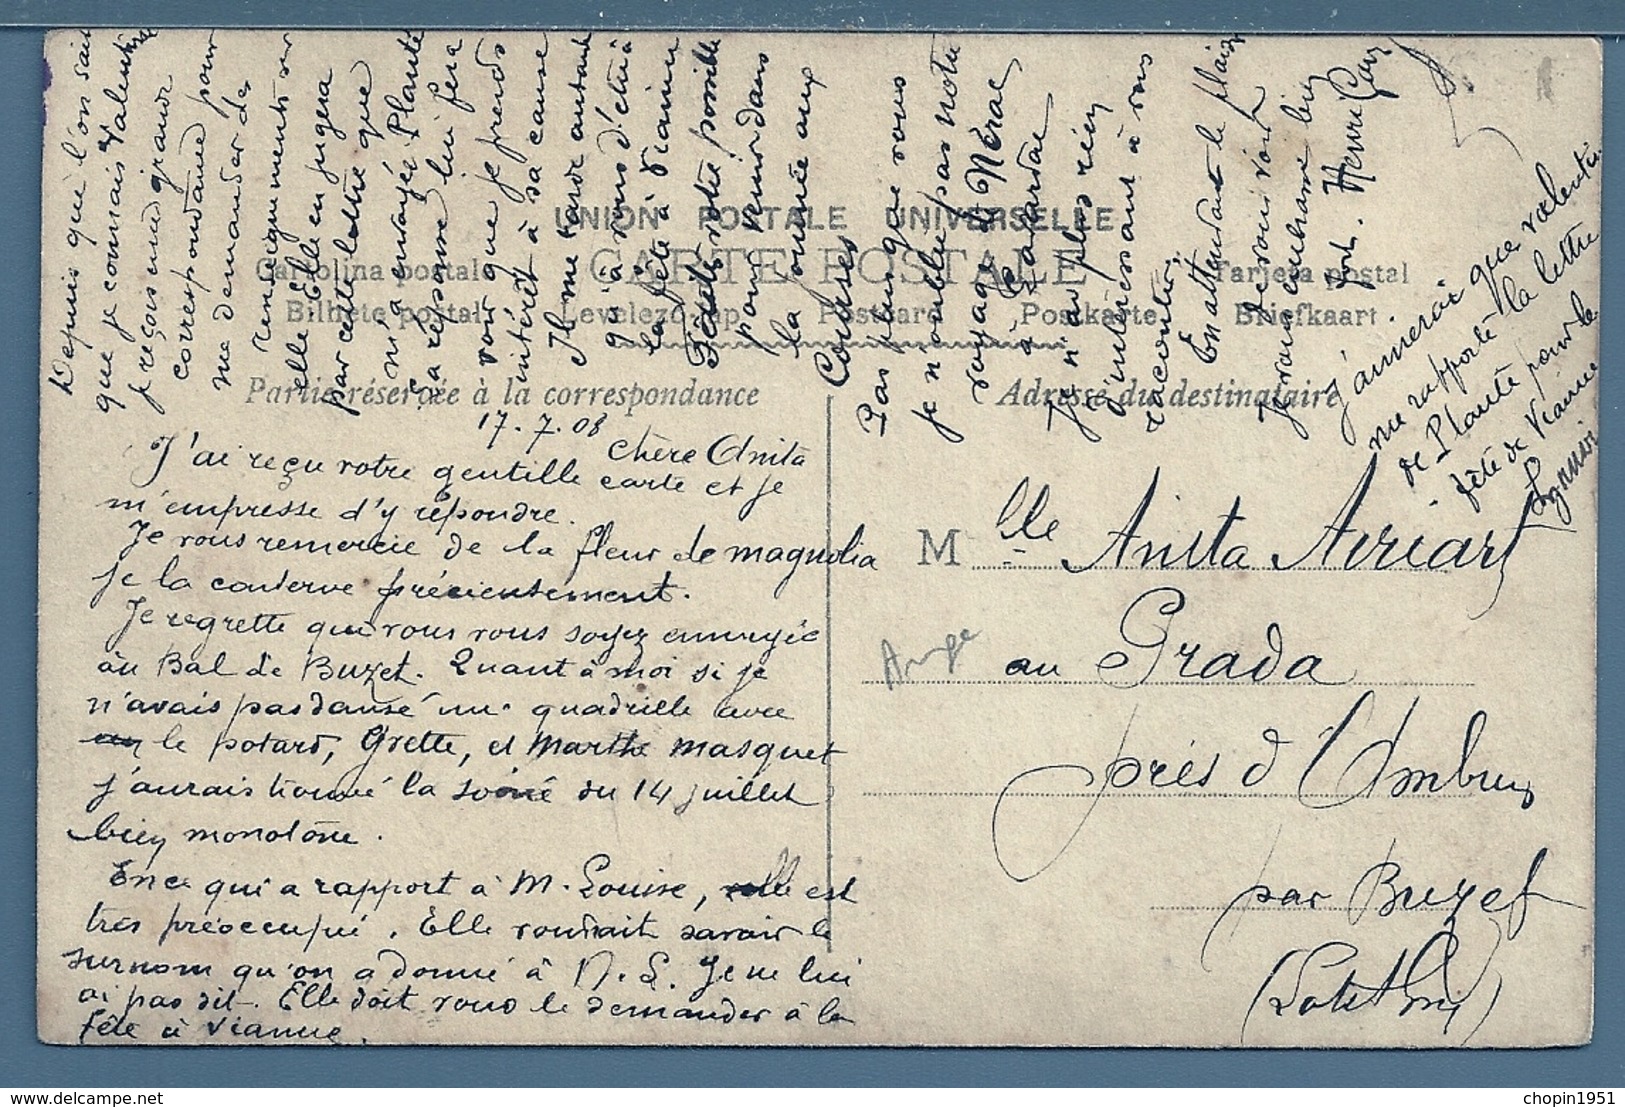 UNION POSTALE UNIVERSELLE
CARTE POSTALE
Cartolina postale
Tarjeta postal
Bilhete postal
Levelező-lap
Postcard
Postkarte
Briefkaart
Partie réservée à la correspondance
Adresse du destinataire
17.7.08
Chère Anita
J'ai reçu votre gentille carte et je
m'empresse d'y répondre.
Je vous remercie de la fleur de magnolia
je la conserve précieusement.
Je regrette que vous vous soyez ennuyée
au Bal de Buzet. Quant à moi si je
n'avais pas dansé un quadrille avec
le potard, Yvette, et Marthe Masquet
j'aurais trouvé la soirée du 14 juillet
bien monotone.
En ce qui a rapport à M. Louise, elle est
très préoccupé. Elle voudrait savoir le
surnom qu'on a donné à N. S. Je ne lui
ai pas dit. Elle doit vous le demander à la
fête à Vianne.
Depuis que l'on sait
que je connais Valentine
je reçois une grande
correspondance pour
me demander des
renseignements sur
elle. Elle en jugera
par cette lettre que
m'a envoyée Plante
Sa réponse lui fera
voir que je prends
intérêt à sa cause
Il me tarde autant
qu'à vous d'être à
la fête à Vianne
votre possible
pour venir dans
la journée aux
Courses
Pas peur que vous
je n'oublie pas notre
voyage de Nérac
à Lavardac
Je n'ai plus rien
d'intéressant à vous
raconter.
En attendant le plaisir
de vous voir
je vous embrasse bien
fort. Henri
J'aimerai que Valentine
me rapporte la lettre
de Plante pour la
fête de Vianne
Mlle Anita Avriart
au Prada
près d'Ambrus
par Buzet
(Lot et Gne)
delcampe.net
chopin1951